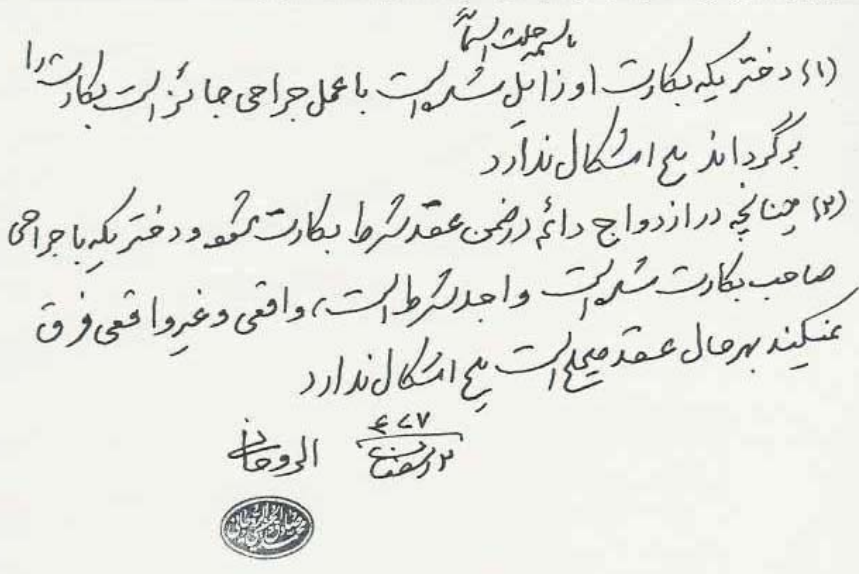 باسمه جلت اسمائه
(۱) دختریکه بکارت او زایل شده است با عمل جراحی جائز است بکارت را
برگرداند هیچ اشکال ندارد
(۲) چنانچه در ازدواج دائم در ضمن عقد شرط بکارت شود دختریکه با جراحی
صاحب بکارت شده است واجد شرط است، واقعی و غیر واقعی فرق
نمیکند بهرحال عقد صحیح است هیچ اشکال ندارد
۴۲۷
۲ رمضان الروحانی
محمد صادق الحسینی الروحانی